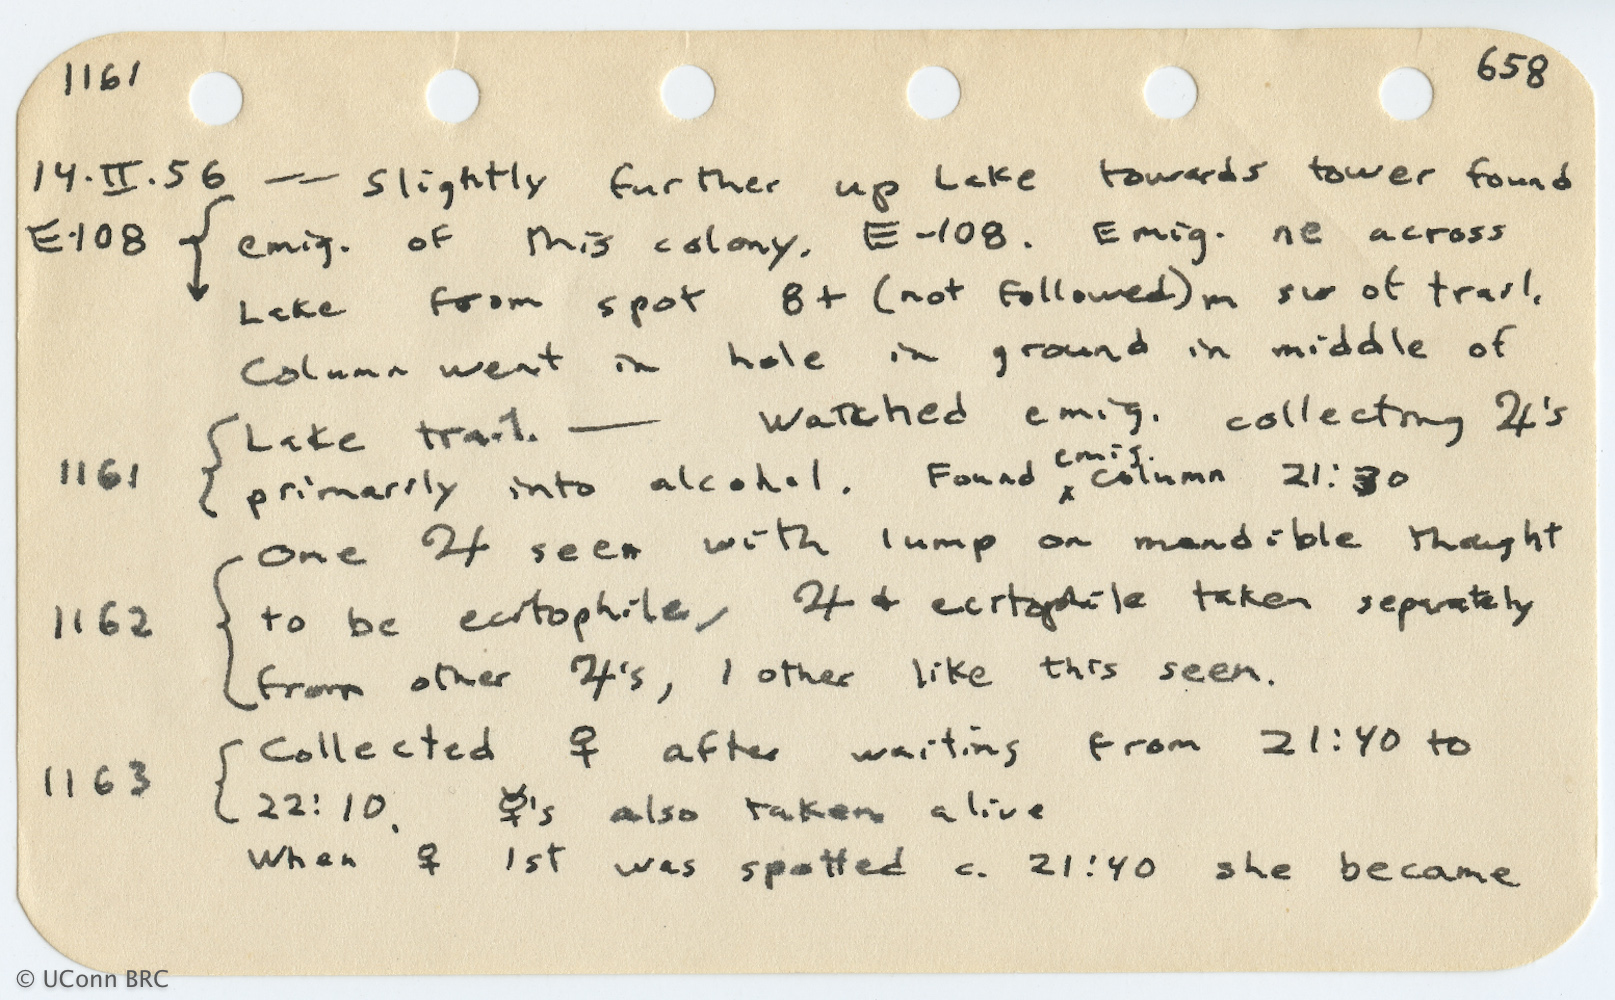 1161 658
14.II.56 — Slightly further up Lake towards tower found
E-108 { emig. of this colony. E-108. Emig. ne across
Lake from spot 8+ (not followed) m sw of trail.
Column went in hole in ground in middle of
Lake trail. — Watched emig. collecting ♃'s
1161 { primarily into alcohol. Found emig. column 21:30
One ♃ seen with lump on mandible thought
1162 { to be ecitophile, ♃ + ecitophile taken separately
from other ♃'s, 1 other like this seen.
1163 { Collected ♀ after waiting from 21:40 to
22:10. ☿'s also taken alive
When ♀ 1st was spotted c. 21:40 she became
© UConn BRC